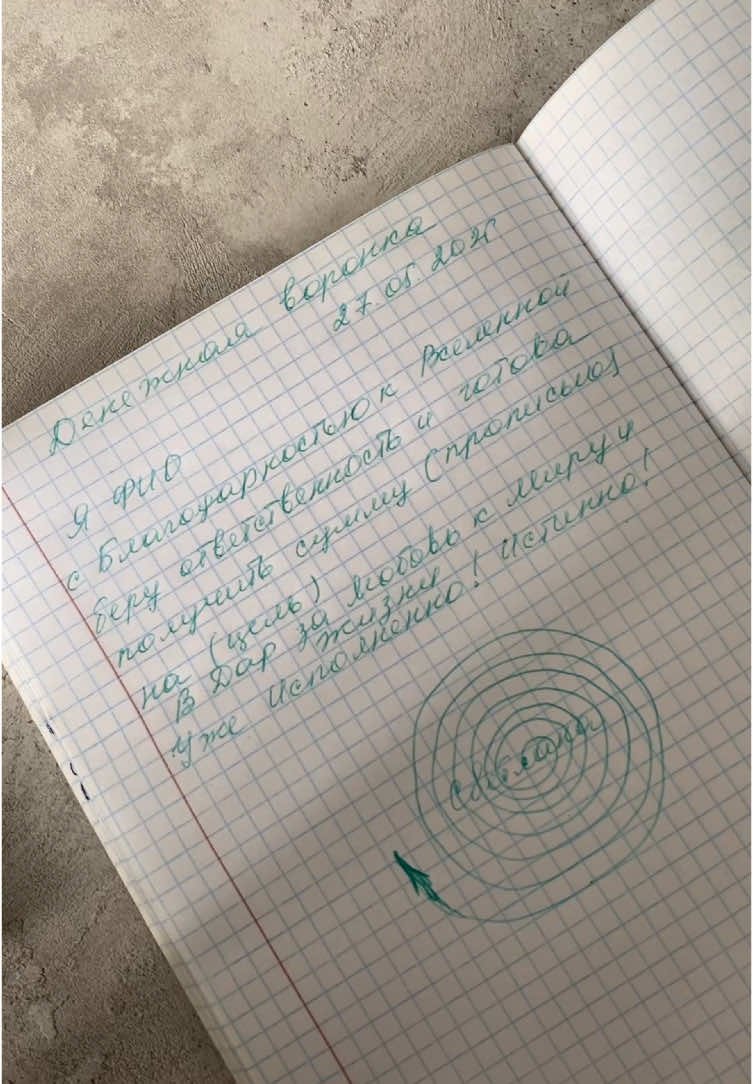 Денежная воронка
27.05.2026
Я ФИО
с Благодарностью к Вселенной
беру ответственность и готова
получить сумму (прописью)
на (цель)
В Дар за любовь к миру и
жизни! Истинно!
Уже Исполненно!